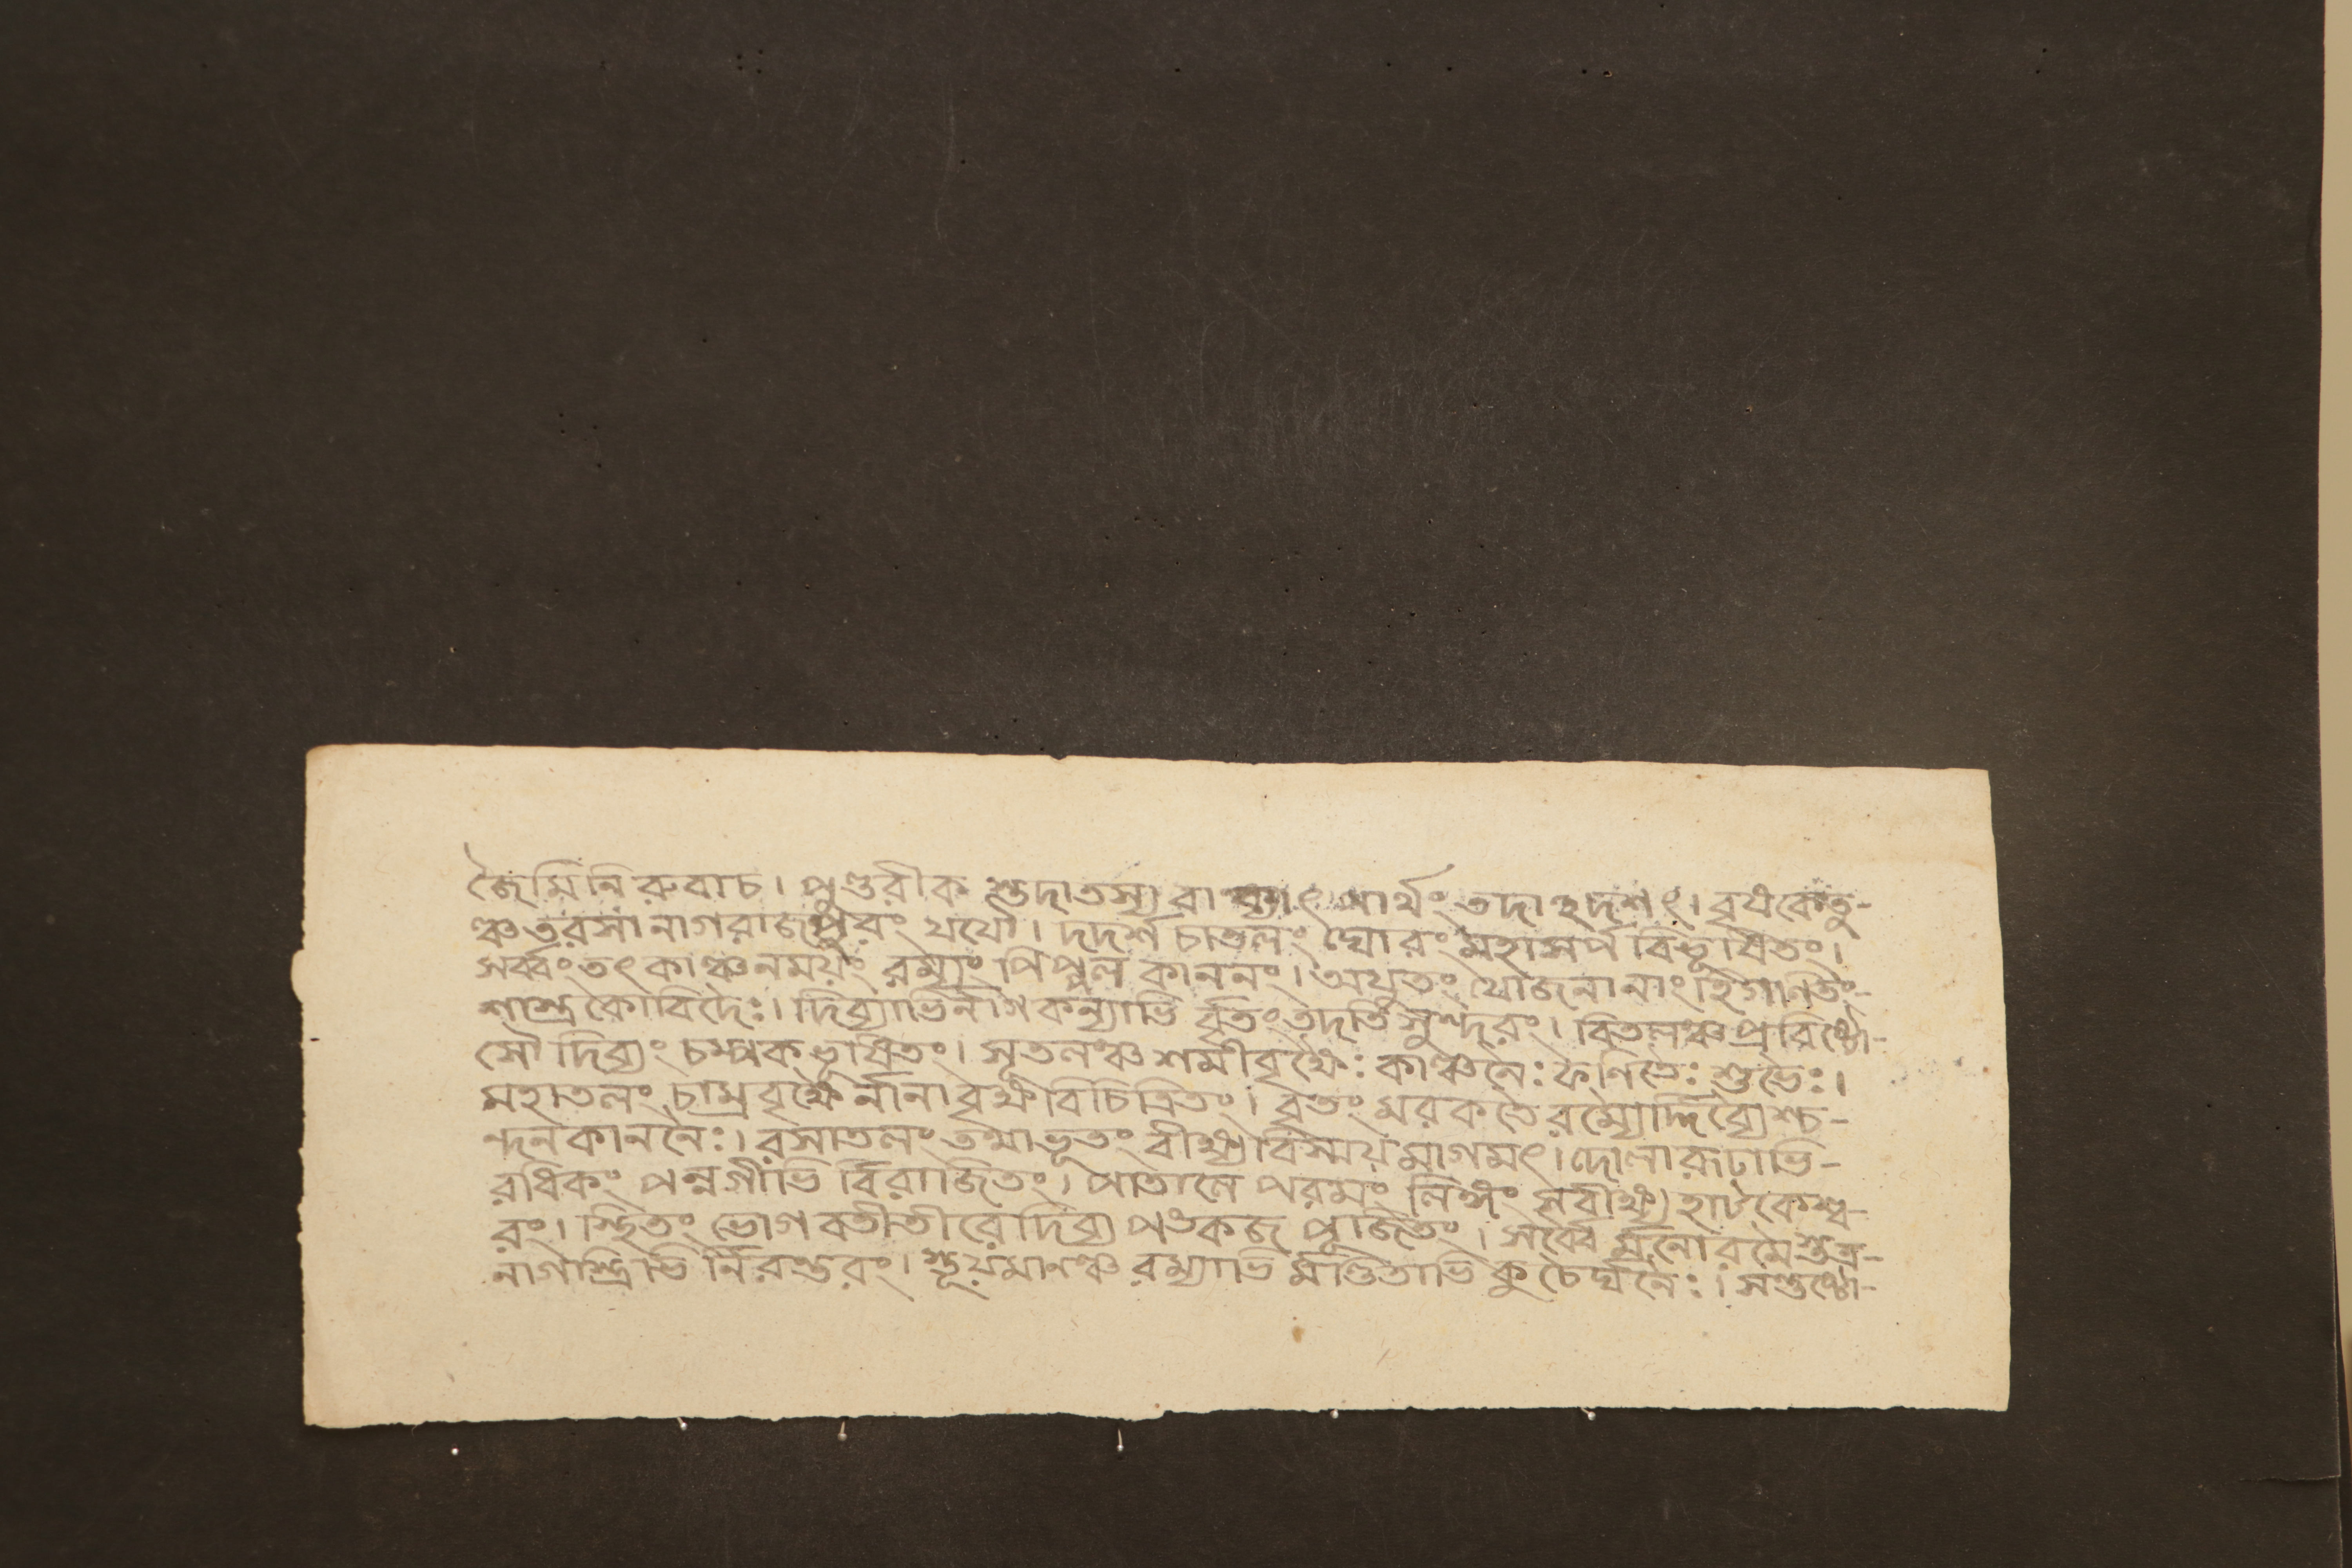 জৈমিনিরুবাচ। পুণ্ডরীক স্তুদাতস্য রা ক্যাৎ পার্থং তদাঽদশৎ। বৃষকেতু-
ঞ্চ তরসা নাগরাজপুরং যযৌ। দদর্শ চাতলং ঘোরং মহাসর্প বিভূষিতং।
সর্ব্বং তৎ কাঞ্চনময়ং রম্যং পিপ্পল কাননং। অযুতং যোজনানাং হি গণিতং-
শাস্ত্র কোবিদৈঃ। দিব্যাভির্নাগ কন্যাভি র্বৃতং তদতি সুন্দরং। বিতলঞ্চ প্রবিষ্টো-
সৌ দিব্যং চম্পক ভূষিতং। সূতলঞ্চ শমীবৃক্ষৈঃ কাঞ্চনৈঃ ফণিতৈঃ শুভৈঃ।
মহাতলং চাম্র বৃক্ষৈ র্নানা বৃক্ষ বিচিত্রিতং। বৃতং মরকতৈ রম্যো র্দ্দিব্যৈশ্চ-
ন্দন কাননৈঃ। রসাতলং তথাভূতং বীক্ষ্য বিস্ময় মাগমৎ। দোলারূঢাভি-
রধিকং পন্নগীভি র্বিরাজিতং। পাতালে পরমং লিঙ্গং সবীক্ষ্য হাটকেশ্ব-
রং। স্থিতং ভোগবতীতীরে দিব্য পঙকজ পূজিতং। সর্ব্বৈ র্মনোরমৈ স্তত্র-
নাগস্ত্রিভি র্নিরন্তরং। স্তূয়মানঞ্চ রম্যাভি র্মণ্ডিতাভি কুচৈর্ঘনৈঃ। সন্তুষ্টো-